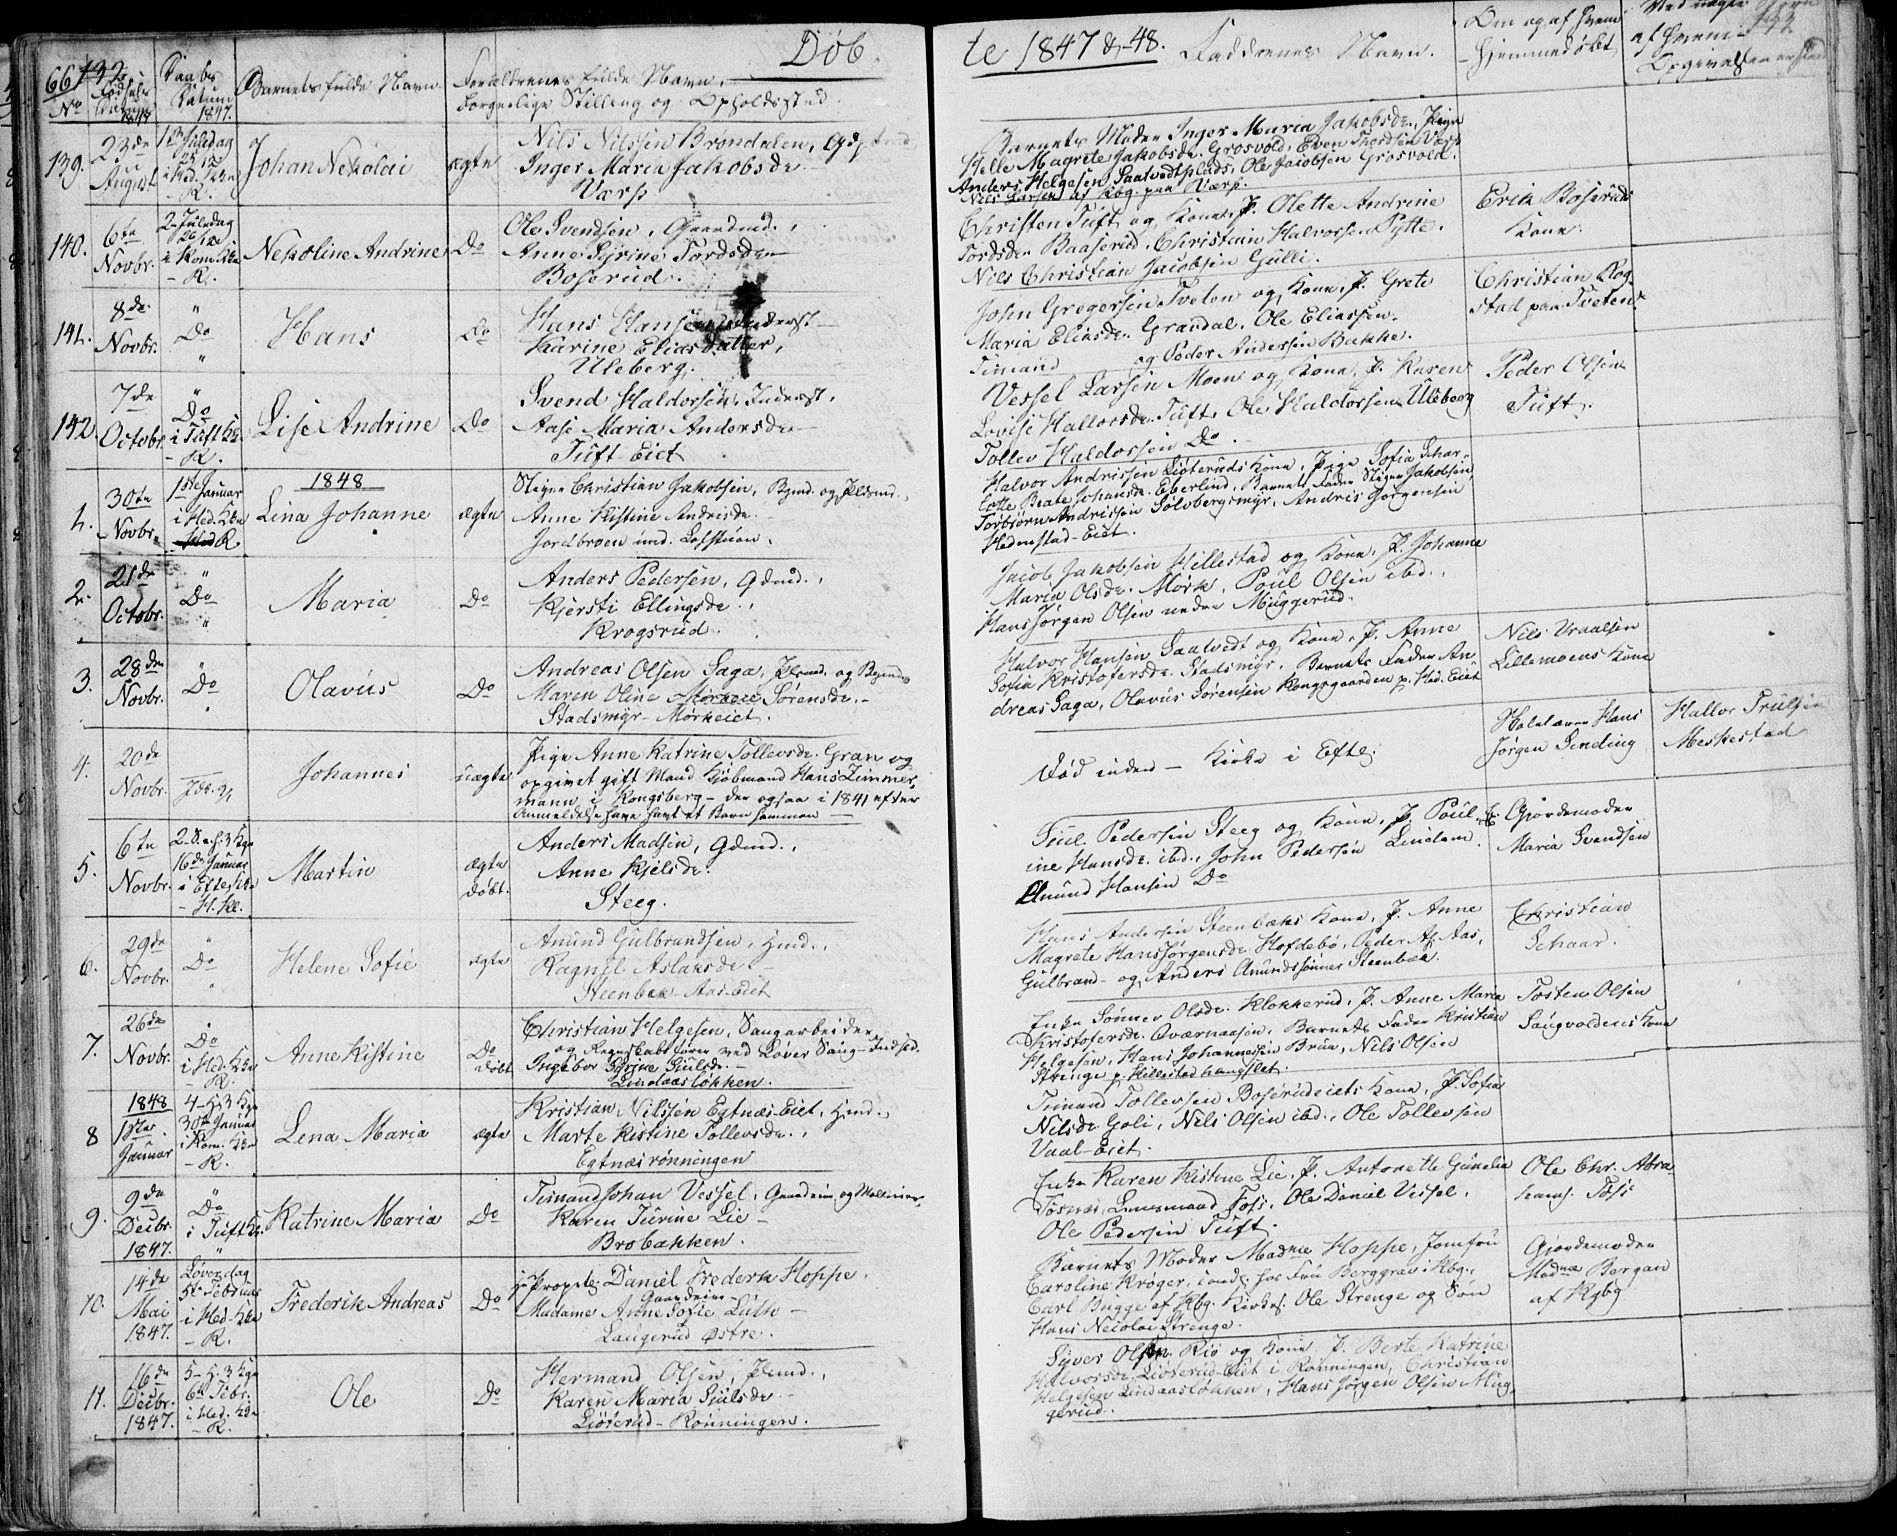 Døb.
te 1847 & -48.
No
Fødsels Datum
Daabs Datum
1847.
Barnets fulde Navn
Forældrenes fulde Navn,
borgerlige Stilling og Opholdssted.
Faddrenes Navn.
Om og af hvem
hjemmedøbt
139.
23de August
1ste Juledag 25/12 i Hed. Kke - K.
Johan Nekolai
ægte
Nils Nilssen Brøndalen,
Inger Maria Jakobsdr.
Værp
Barnets Moder Inger Maria Jakobsdr., Pige
Helle Magrete Jakobsdr. Grosvold, Even Thordsen Værp
Anders Helgesen Saatvedtplads, Ole Jacobsen Grosvold.
Nils Larsen af Kbg. paa Værp.
140.
6te Novbr.
2. Juledag 26/12 i Kom. Kke - K.
Nekoline Andrine
Do
Ole Svendsen, Gaardmd.,
Anne Syrine Tordsdr.
Boserud.
Christen Tuft og Kone, P. Olette Andrine
Tordsdr. Baaserud, Christian Halvorsen Pytte.
Nils Christian Jacobsen Gulli.
Erik Boseruds
Kone.
141.
8de Novbr.
" Do "
Hans
Do
Hans Hansen, Inderst
Karine Eliasdatter,
Uleberg.
John Gregersen Tveten og Kone, P. Grete
Maria Eliasdr. Grandal. Ole Eliassen.
Timand og Peder Andersen Bakke.
Christian Rog-
stad paa Tveten.
142.
7de Octobr.
" Do i Tuft Kke. - K.
Lise Andrine
Do
Svend Haldorsen, Inderst,
Aase Maria Andersdr.
Tuft-Eiet
Vessel Larsen Moen og Kone, P. Karen
Lovise Hallorsdr. Tuft, Ole Haldorsen Uleberg
Tollev Haldorsen Do.
Peder Olsen
Tuft.
1848
1.
30te Novbr.
1ste Januar i Hed. Kke K.
Lina Johanne
ægte
Steger Christian Jakobsen, Bgmd. og Pldsmd.,
Anne Kistine Andrisdr.
Jordbroen und. Loftstuen.
Halvor Andrissen Liøteruds Kone, Pige Sofia Schar-
lotte Beate Johansdr. Eberlind, Barnets Fader Steger Jakobsen,
Torbiørn Andrissen Solvbergsmyr, Andris Jørgensen
Hedenstad-Eiet.
2.
21de Octobr.
" Do "
Maria
Do
Anders Pedersen, Gdmd.,
Kjersti Ellingsdr.,
Krogsrud.
Jacob Jakobsen Hillestad og Kone, P. Johanne
Maria Olsdr. Mørk, Poul Olsen ibd.,
Hans Jørgen Olsen nedre Muggerud.
3.
28de Novbr.
" Do
Olavus
Do
Andreas Olsen Saga, Plsmd. og Bgmd.
Maren Oline Sørensdr.
Stadsmyr - Mørkeiet.
Halvor Hansen Saatvedt og Kone, P. Anne
Sofia Kristofersdr. Stadsmyr, Barnets Fader An-
dreas Saga, Olavus Sørensen Kongsgaarden p. Hed. Eiet
Nils Vraalsen
Lillemoens Kone
4.
20de Novbr.
Johannes
uægte
Pige Anne Katrine Tollevsdr. Gran og
opgivet gift Mand Kjøbmand Hans Zimmer-
mann i Kongsberg - der ogsaa i 1841 efter
Anmeldelse have havt et Barn sammen
Død inden Kirke i Efte.
Hans
Jørgen Sending
Hallor Trulsen
Meskestad
5.
6te Novbr.
16de Januar i Efteløt Kke
Martin
ægte
døbt.
Anders Madsen, Gdmd.,
Anne Kjelsdr.
Steeg.
Juul Pedersen Steeg og Kone, P. Poul-
ine Hansdr. ibd., John Pedersen Lindem.
Amund Hansen Do
Gjordemoder
Maria Svendsen
6.
29de Novbr.
" Do "
Helene Sofie
ægte
Amund Gulbrandsen, Hmd.,
Ragnil Aslaksdr.
Steenbek - Aas-Eiet
Hans Andersen Steenbeks Kone, P. Anne
Magrete Hansjørgensdr. Hofdebø, Peder Aas,
Gulbrand- og Anders Amundssønner Steenbek.
Christian
Schaar.
7.
26de Novbr.
" Do i Hed. Kke - K.
Anne Kistine
Do
døbt
Christian Helgesen, Saugarbeider
og Regnskabsfører ved Løver Saug-Indstd.
Ingebor Gurine Juulsdr.
Lindaasløkken.
Enke Sønnev Olsdr. Klokkerud, P. Anne Maria
Kristofersdr. Qværnaasen, Barnets Fader Kristian
Helgesen, Hans Johannessen Brua, Nils Olsen
Strenge p. Hillestad hangslet.
Tosten Olsen
Saugvoldens Kone
8
1848
1ste Januar
30te Januar i Kom. Kke - K.
Lena Maria
ægte
Kristian Nilssen Egtnæs-Eiet, Hmd.,
Marte Kistine Tollevsdr.,
Egtnæsrønningen
Timand Tollevsen Boserudeiets Kone, P. Sofia
Nilsdr. Goli, Nils Olsen ibd., Ole Tollevsen
Vaal-Eiet.
9.
9de Decbr. 1847.
" Do i Tuft Kke. "
Katrine Maria
Do
Timand Johan Vessel, Gaardeier og
Karen Turine Lie -
Brobakken.
Enke Karen Kistine Lie, P. Antonette Gunelia
Fosnæs, Lensmand Foss, Ole Daniel Vessel,
Ole Pedersen Tuft.
Ole Chr. Abra-
hams. Foss
10.
14de Mai 1847.
Løverdag 5te Februar i Hed. Kke - K.
Frederik Andreas
Do
Hr. Propretr. Daniel Frederk Hoppe,
Gaardeier
Madame Anne Sofie Luth -
Laugerud Østre.
Barnets Moder Madme Hoppe, Jomfru
Caroline Krøger, cond. hos Fru Berggrav i Kbg.,
Carl Bugge af Kbg. Kirkes. Ole Strenge og Søn
Hans Nicolai Strenge.
Gjordemoder
Madme Bergan
af Kgbg
11.
16de Decbr. 1847.
6te Febr. i Hed. Kke - K.
Ole
Do
Hermand Olsen, Plsmd.,
Karen Maria Juulsdr. -
Liøterud-Rønningen.
Syver Olsen Riø og Kone, P. Berte Katrine
Halvorsdr. Liøterud-Eiet i Rønningen, Christian
Helgesen Lindaasløkken, Hans Jørgen Olsen Mug-
gerud.